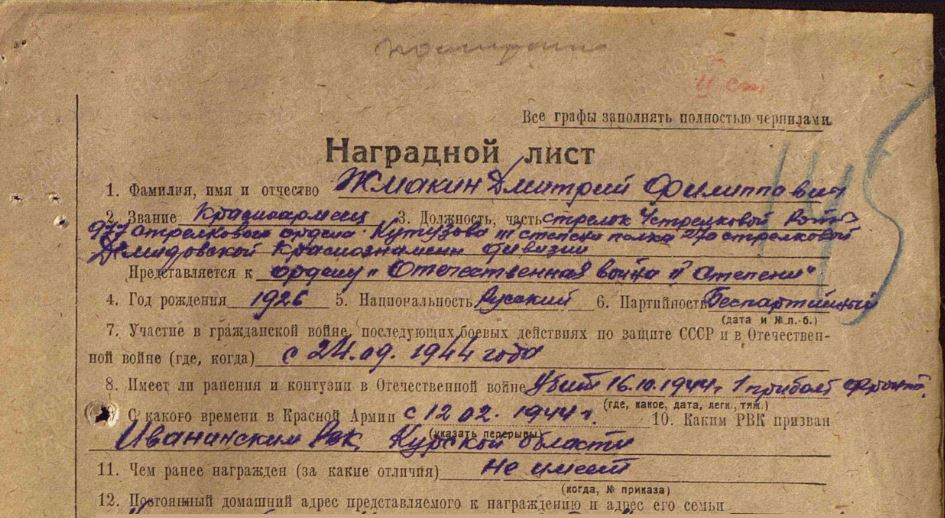 11 ст
Все графы заполнять полностью чернилами.
145
Наградной лист
1. Фамилия, имя и отчество Жмакин Дмитрий Филиппович
2. Звание Красноармеец 3. Должность, часть стрелок 4 стрелковой роты
977 стрелкового ордена Кутузова III степени полка 270 стрелковой
Демидовской Краснознамен дивизии
Представляется к ордену "Отечественная война II Степени"
4. Год рождения 1926 5. Национальность Русский 6. Партийность Беспартийный
(дата и № п.-б.)
7. Участие в гражданской войне, последующих боевых действиях по защите СССР и в Отечествен-
ной войне (где, когда) с 24.09.1944 года
8. Имеет ли ранения и контузии в Отечественной войне Убит 16.10.1944г. 1 прибалт фронт.
(где, какое, дата, легк., тяж.)
С какого времени в Красной Армии с 12 02. 1944 г. 10. Каким РВК призван
(указать перерывы)
Иванинским Рвк, Курской области
11. Чем ранее награжден (за какие отличия) Не имеет
(когда, № приказа)
12. Постоянный домашний адрес представляемого к награждению и адрес его семьи